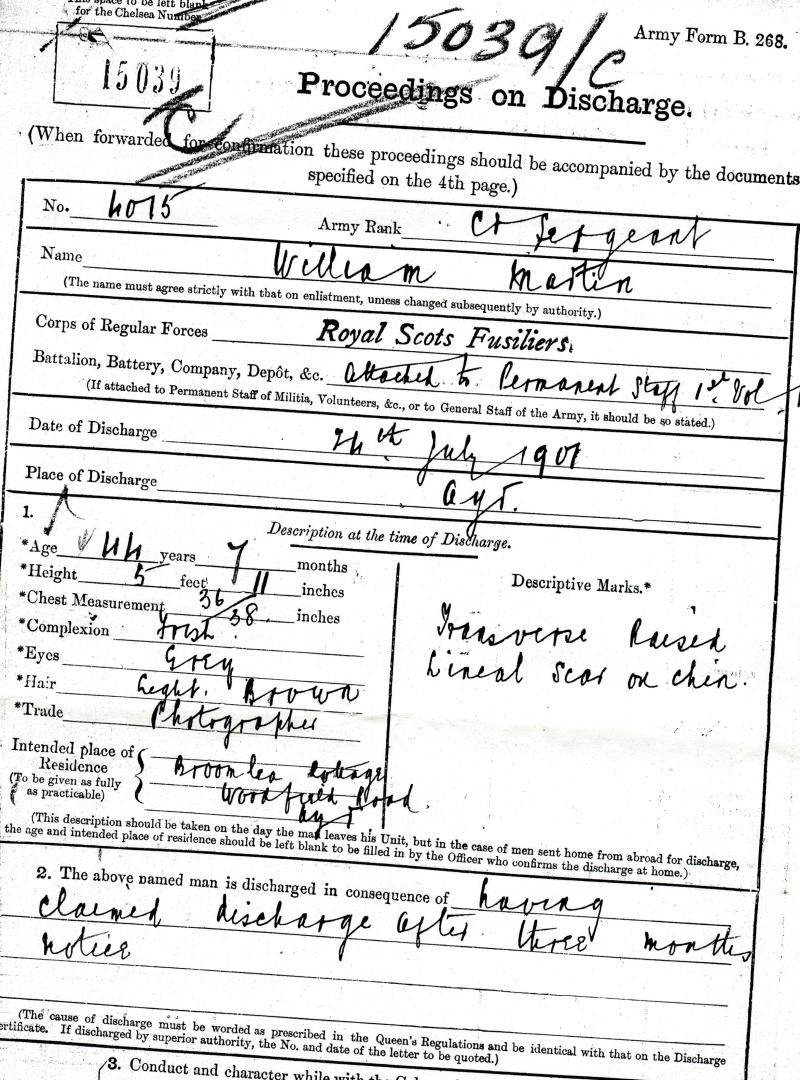 This space to be left blank
for the Chelsea Number
15039
15039/C
C
Army Form B. 268.
Proceedings on Discharge.
(When forwarded for confirmation these proceedings should be accompanied by the documents
specified on the 4th page.)
No. 4015 Army Rank Cr Sergeant
Name William Martin
(The name must agree strictly with that on enlistment, unless changed subsequently by authority.)
Corps of Regular Forces Royal Scots Fusiliers.
Battalion, Battery, Company, Depôt, &c. Attached to Permanent Staff 1st Vol
(If attached to Permanent Staff of Militia, Volunteers, &c., or to General Staff of the Army, it should be so stated.)
Date of Discharge 24th July 1901
Place of Discharge Ayr.
1. Description at the time of Discharge.
*Age 44 years 7 months
*Height 5 feet 11 inches
*Chest Measurement 36/38 inches
*Complexion Fresh
*Eyes Grey
*Hair Light Brown
*Trade Photographer
Intended place of
Residence
(To be given as fully
as practicable)
Broomlea Cottage
Woodfield Road.
Ayr
Descriptive Marks.*
Transverse Raised
Lineal Scar on chin.
(This description should be taken on the day the man leaves his Unit, but in the case of men sent home from abroad for discharge,
the age and intended place of residence should be left blank to be filled in by the Officer who confirms the discharge at home.)
2. The above named man is discharged in consequence of having
claimed discharge after three months
notice
(The cause of discharge must be worded as prescribed in the Queen's Regulations and be identical with that on the Discharge
ertificate. If discharged by superior authority, the No. and date of the letter to be quoted.)
3. Conduct and character while with the